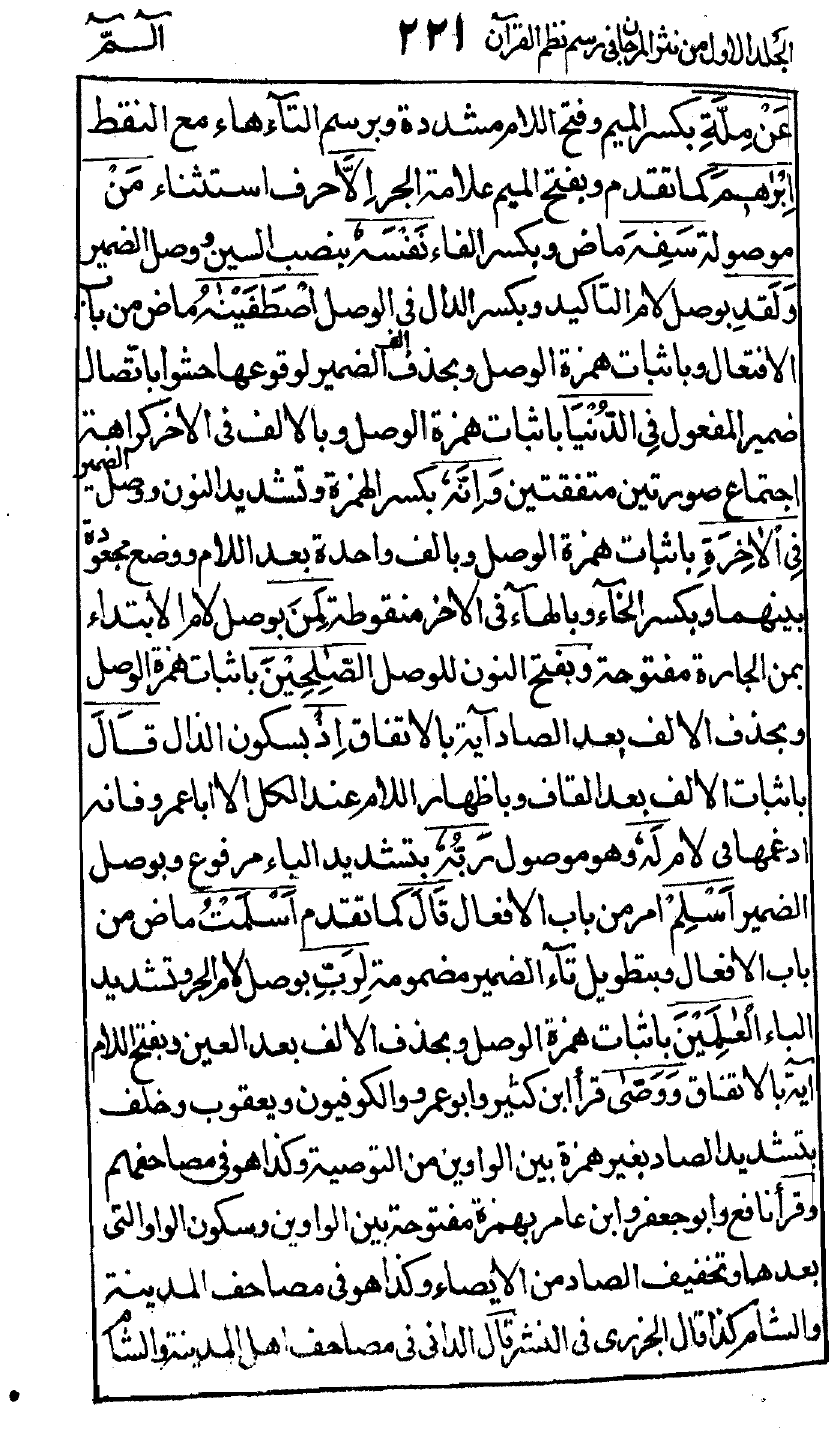 الجلد الاول من نثر المرجان في رسم نظم القرآن ٢٢١ آلـمّ
عَنْ مِلَّةِ بكسر الميم وفتح اللام مشددة وبرسم التآء هاء مع النقط
اِبْرٰهٖمَ كما تقدم وبفتح الميم علامة الجر اِلَّا حرف استثناء مَنْ
موصولة سَفِهَ ماض وبكسر الفاء نَفْسَهٗ بنصب السين ووصل الضمير
وَلَقَدِ بوصل لام التاكيد وبكسر الدال في الوصل اصْطَفَيْنٰهُ ماض من باب
الافتعال وباثبات همزة الوصل وبحذف الف الضمير لوقوعها حشوا باتصال
ضمير المفعول فِي الدُّنْيَا باثبات همزة الوصل وبالالف في الاخر كراهة
اجتماع صورتين متفقتين وَاِنَّهٗ بكسر الهمزة وتشديد النون ووصل الضمير
فِي الْاٰخِرَةِ باثبات همزة الوصل وبالف واحدة بعد اللام ووضع مجعودة
بينهما وبكسر الخآء وبالهآء في الاخر منقوطة لَمِنَ بوصل لام الابتداء
بمن الجارة مفتوحة وبفتح النون للوصل الصّٰلِحِيْنَ باثبات همزة الوصل
وبحذف الالف بعد الصاد آية بالاتفاق اِذْ بسكون الذال قَالَ
باثبات الالف بعد القاف وباظهار اللام عند الكل الا ابا عمرو فانه
ادغمها في لام لَهٗ وهو موصول رَبُّهٗ بتشديد الباء مرفوع وبوصل
الضمير اَسْلِمْ امر من باب الافعال قَالَ كما تقدم اَسْلَمْتُ ماض من
باب الافعال وبتطويل تآء الضمير مضمومة لِرَبِّ بوصل لام الجر وتشديد
الباء الْعٰلَمِيْنَ باثبات همزة الوصل وبحذف الالف بعد العين وبفتح اللام
آية بالاتفاق وَوَصّٰى قرأ ابن كثير وابو عمرو والكوفيون ويعقوب وخلف
بتشديد الصاد بغير همزة بين الواوين من التوصية وكذا هو في مصاحفهم
وقرأ نافع وابو جعفر وابن عامر بهمزة مفتوحة بين الواوين وسكون الواو التي
بعدها وتخفيف الصاد من الايصاء وكذا هو في مصاحف المدينة
والشام كذا قال الجزري في النشر قال الداني في مصاحف اهل المدينة والشام